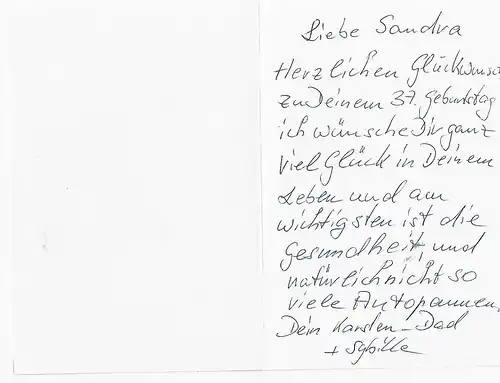 Liebe Sandra
Herzlichen Glückwunsc
zu Deinem 37. Geburtstag
ich wünsche Dir ganz
viel Glück in Deinem
Leben und am
wichtigsten ist die
Gesundheit, und
natürlich nicht so
viele Autopannen.
Dein Karsten - Dad
+ Sybille